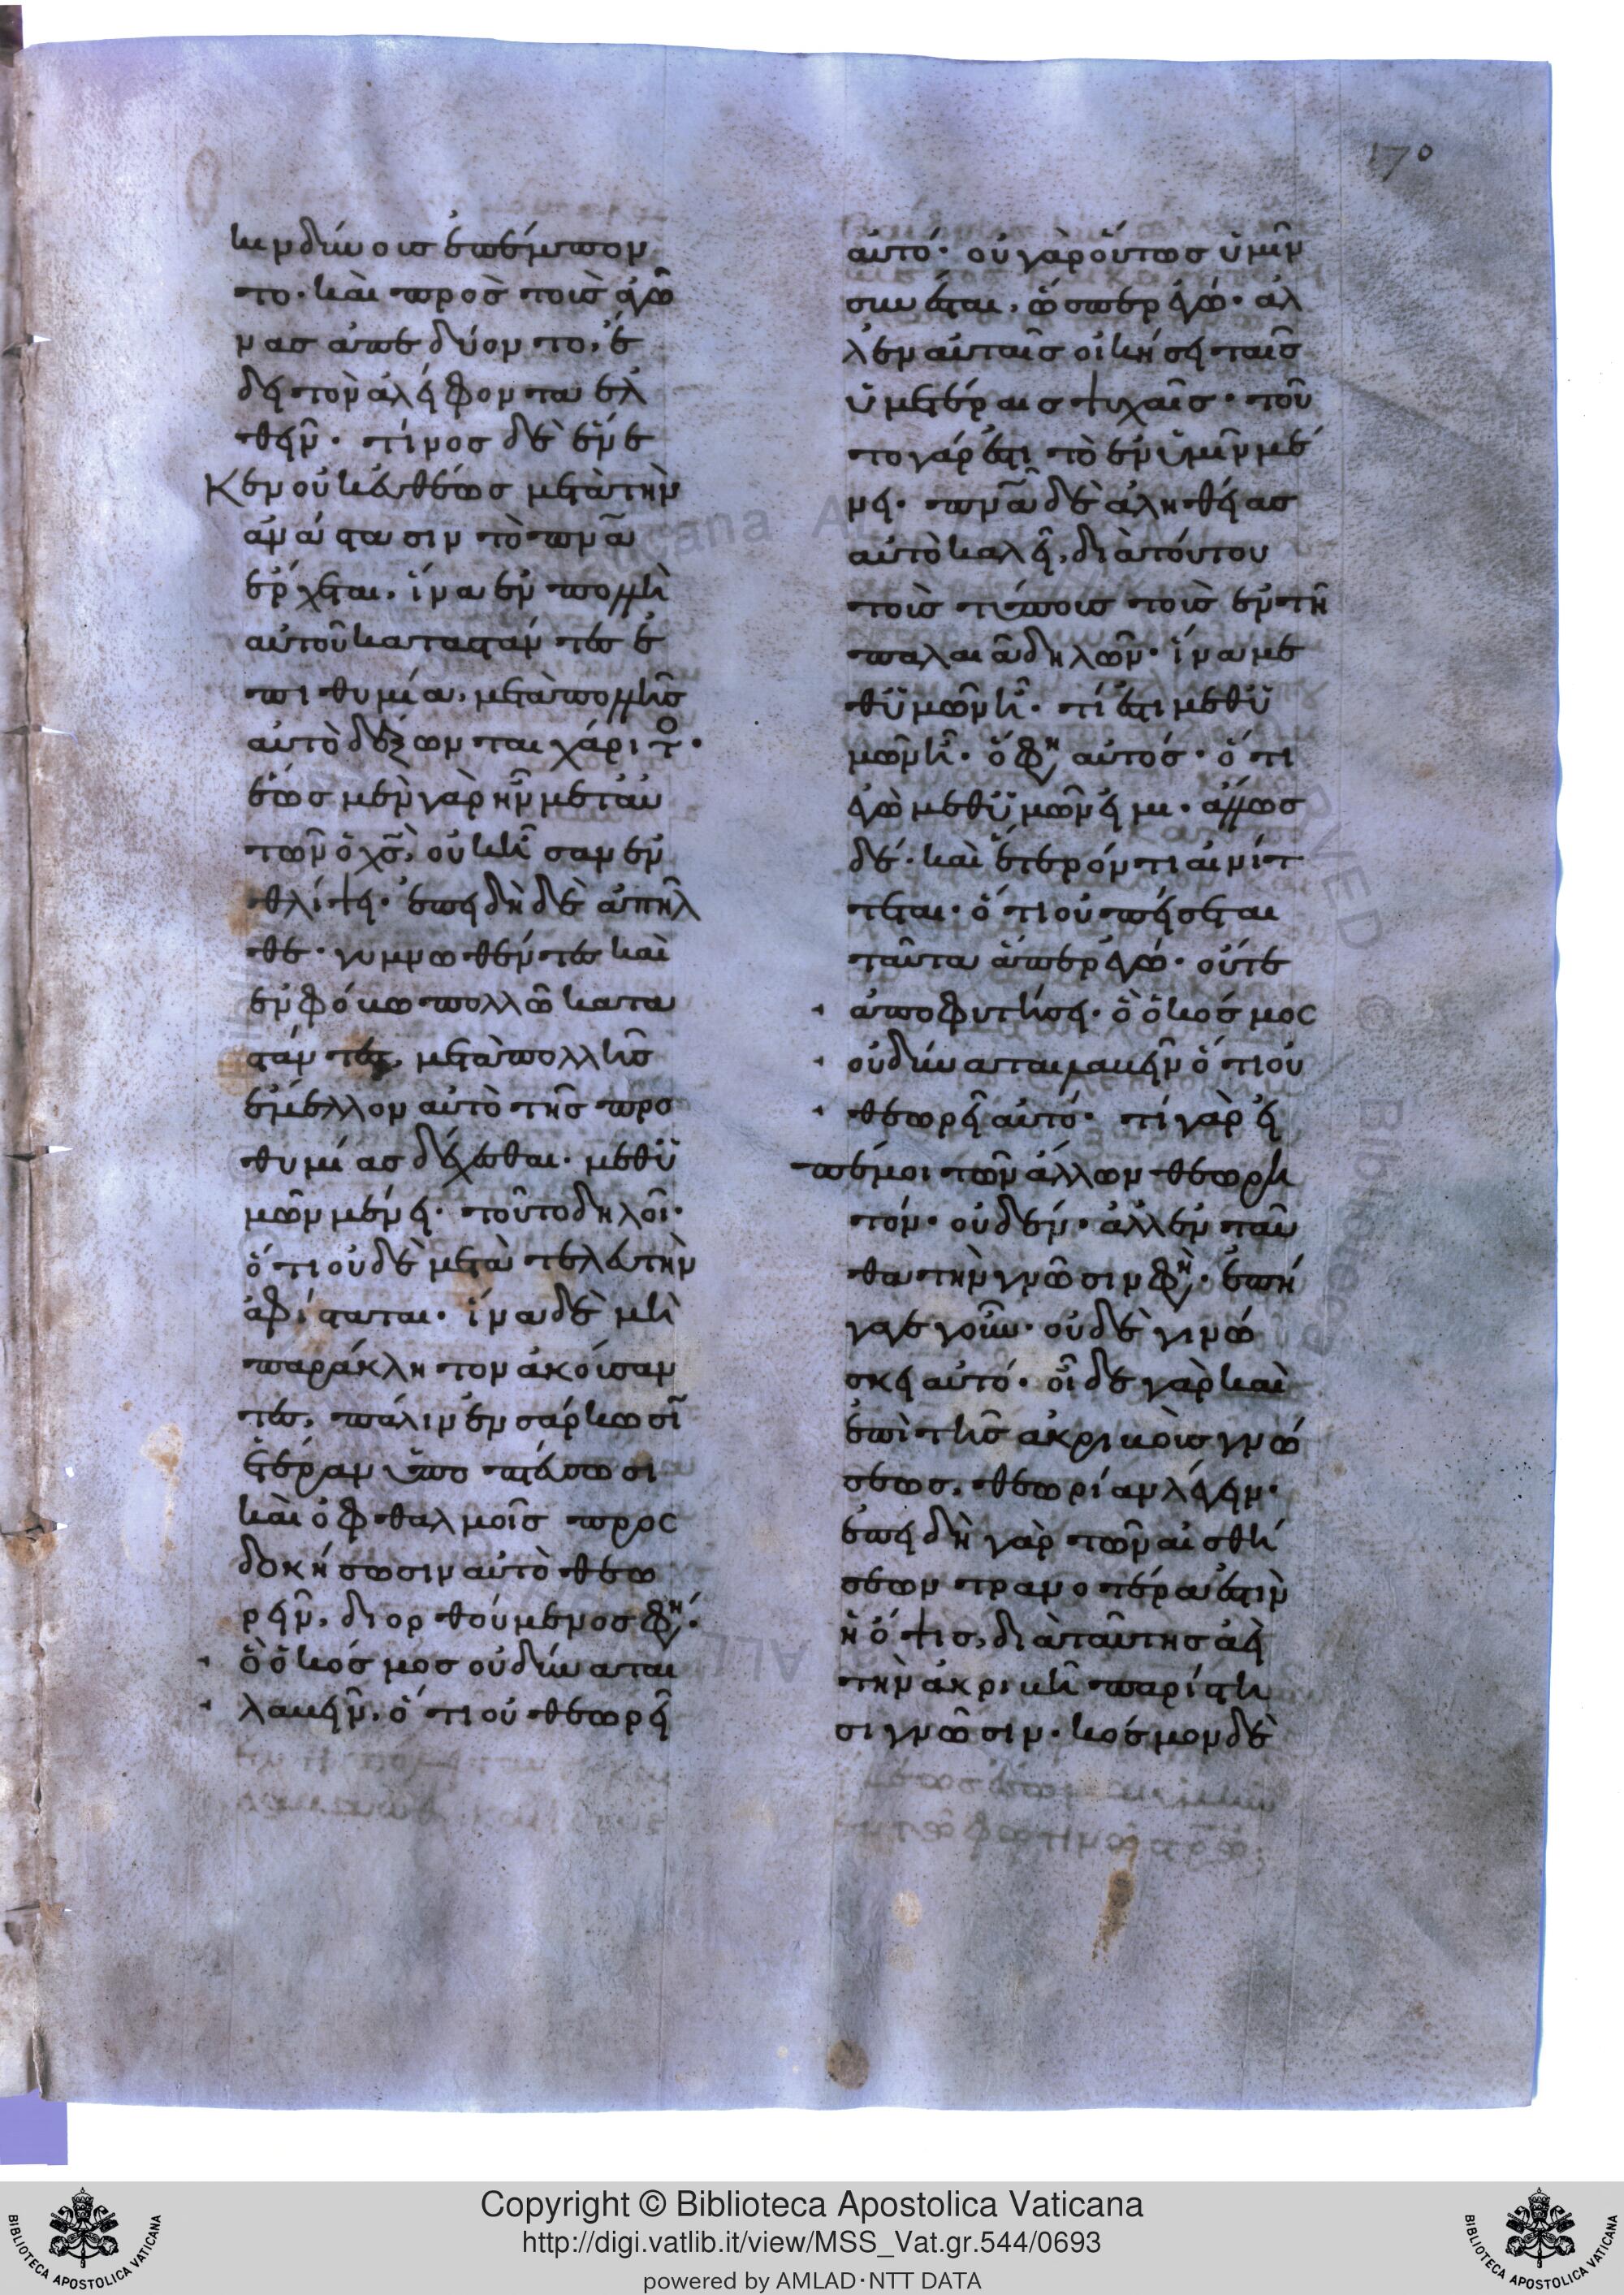 170
κινδύνοις ἐπέμπον
το· καὶ πρὸς τοὺς ἀγῶ
νας ἀπεδύοντο, ἔ
δει τὸν ἀλείφοντα ἐλ
θεῖν· τίνος δὲ ἕνε
κεν οὐκ εὐθέως μετὰ τὴν
ἀνάστασιν τὸ πνᾶ
ἔρχεται, ἵνα ἐν πολλῆ
αὐτοῦ καταστάντες ἐ
πιθυμία, μετὰ πολλῆς
αὐτὸ δέξωνται χάριτο·
ἕως μὲν γὰρ ἦν μετ' αὐ
τῶν ὁ χς, οὐκ ἦσαν ἐν
θλίψει· ἐπειδὴ δὲ ἀπῆλ
θε· γυμνωθέντες καὶ
ἐν φόβω πολλῶ κατα
στάντες, μετὰ πολλῆς
ἔμελλον αὐτὸ τῆς προ
θυμίας δέχεσθαι· μεθ' ὑ
μῶν μένει· τοῦτο δηλοῖ·
ὅτι οὐδὲ μετὰ τελευτὴν
ἀφίσταται· ἵνα δὲ μὴ
παράκλητον ἀκούσαν
τες, πάλιν ἐνσάρκωσϊ
ἑτέραν ὑποπτεύσωσι
καὶ ὀφθαλμοῖς προς
δοκήσωσιν αὐτὸ θεω
ρεῖν, διορθούμενος φη·
ὃ ὁ κόσμος οὐ δύναται
λαβεῖν, ὅτι οὐ θεωρεῖ
αὐτό· οὐ γὰρ οὕτως ὑμῖν
συνέσται, ὥσπερ ἐγώ· ἀλ
λ' ἐν αὐταῖς οἰκήσει ταῖς
ὑμετέραις ψυχαῖς· τοῦ
το γάρ ἐστι τὸ ἐν ὑμῖν μέ
νει· πνᾶ δὲ ἀληθείας
αὐτὸ καλεῖ, διὰ τούτου
τοὺς τύπους τοὺς ἐν τῆ
παλαιᾶ δηλῶν· ἵνα με
θ' ὑμῶν ἦ· τί ἐστι μεθ' ὑ
μῶν ἦ· ὅ φη αὐτός· ὅτι
ἐγὼ μεθ' ὑμῶν εἰμι· ἄλλως
δέ· καὶ ἕτερόν τι αἰνίτ
τεται· ὅτι οὐ πείσεται
ταῦτα ἅπερ ἐγώ· οὔτε
ἀποφοιτήσει· ὃ ὁ κόσμος
οὐ δύναται λαβεῖν ὅτι οὐ
θεωρεῖ αὐτό· τί γὰρ εἰ
πέ μοι τῶν ἄλλων θεωρη
τόν· οὐδέν· ἀλλ' ἐνταῦ
θα τὴν γνῶσιν φη· ἐπή
γαγε γοῦν· οὐδὲ γινώ
σκει αὐτό· οἶδε γὰρ καὶ
ἐπὶ τῆς ἀκριβοῦς γνώ
σεως, θεωρίαν λέγειν·
ἐπειδὴ γὰρ τῶν αἰσθή
σεων τρανοτέρα ἐστὶν
ἡ ὄψις, διὰ ταύτης ἀεὶ
τὴν ἀκριβῆ παρίστη
σι γνῶσιν· κόσμον δὲ
Copyright © Biblioteca Apostolica Vaticana
http://digi.vatlib.it/view/MSS_Vat.gr.544/0693
powered by AMLAD·NTT DATA
BIBLIOTECA APOSTOLICA VATICANA
BIBLIOTECA APOSTOLICA VATICANA